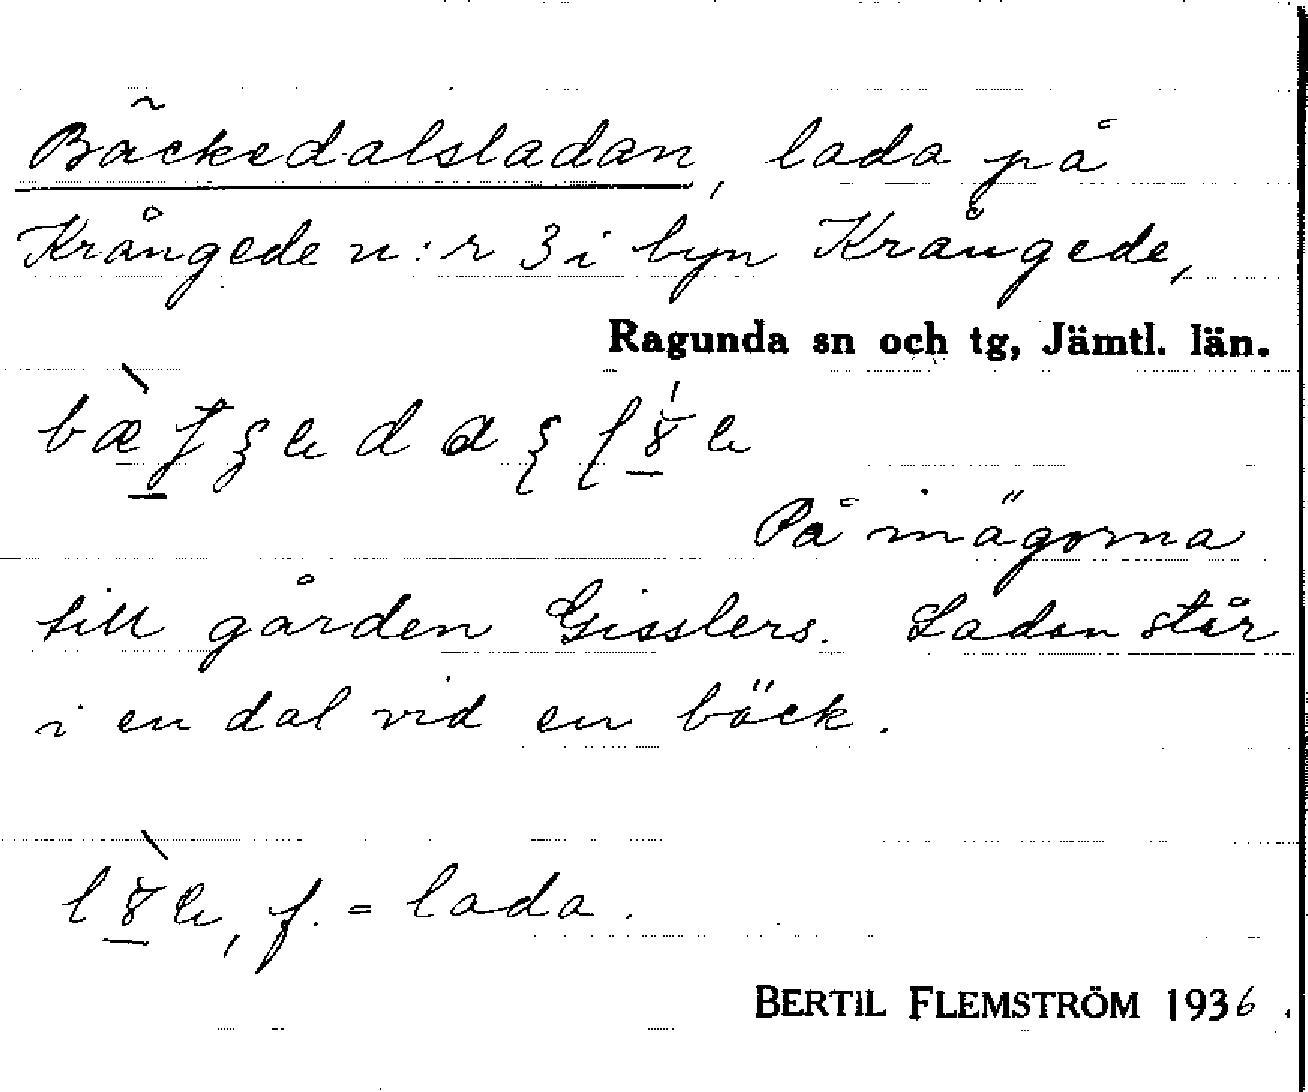 Bäckedalsladan, lada på
Krångede n:r 3 i byn Krångede,
Ragunda sn och tg, Jämtl. län.
På inägorna
till gården Gisslers. Ladan står
i en dal vid en bäck.
f. = lada.
BERTIL FLEMSTRÖM 1936.